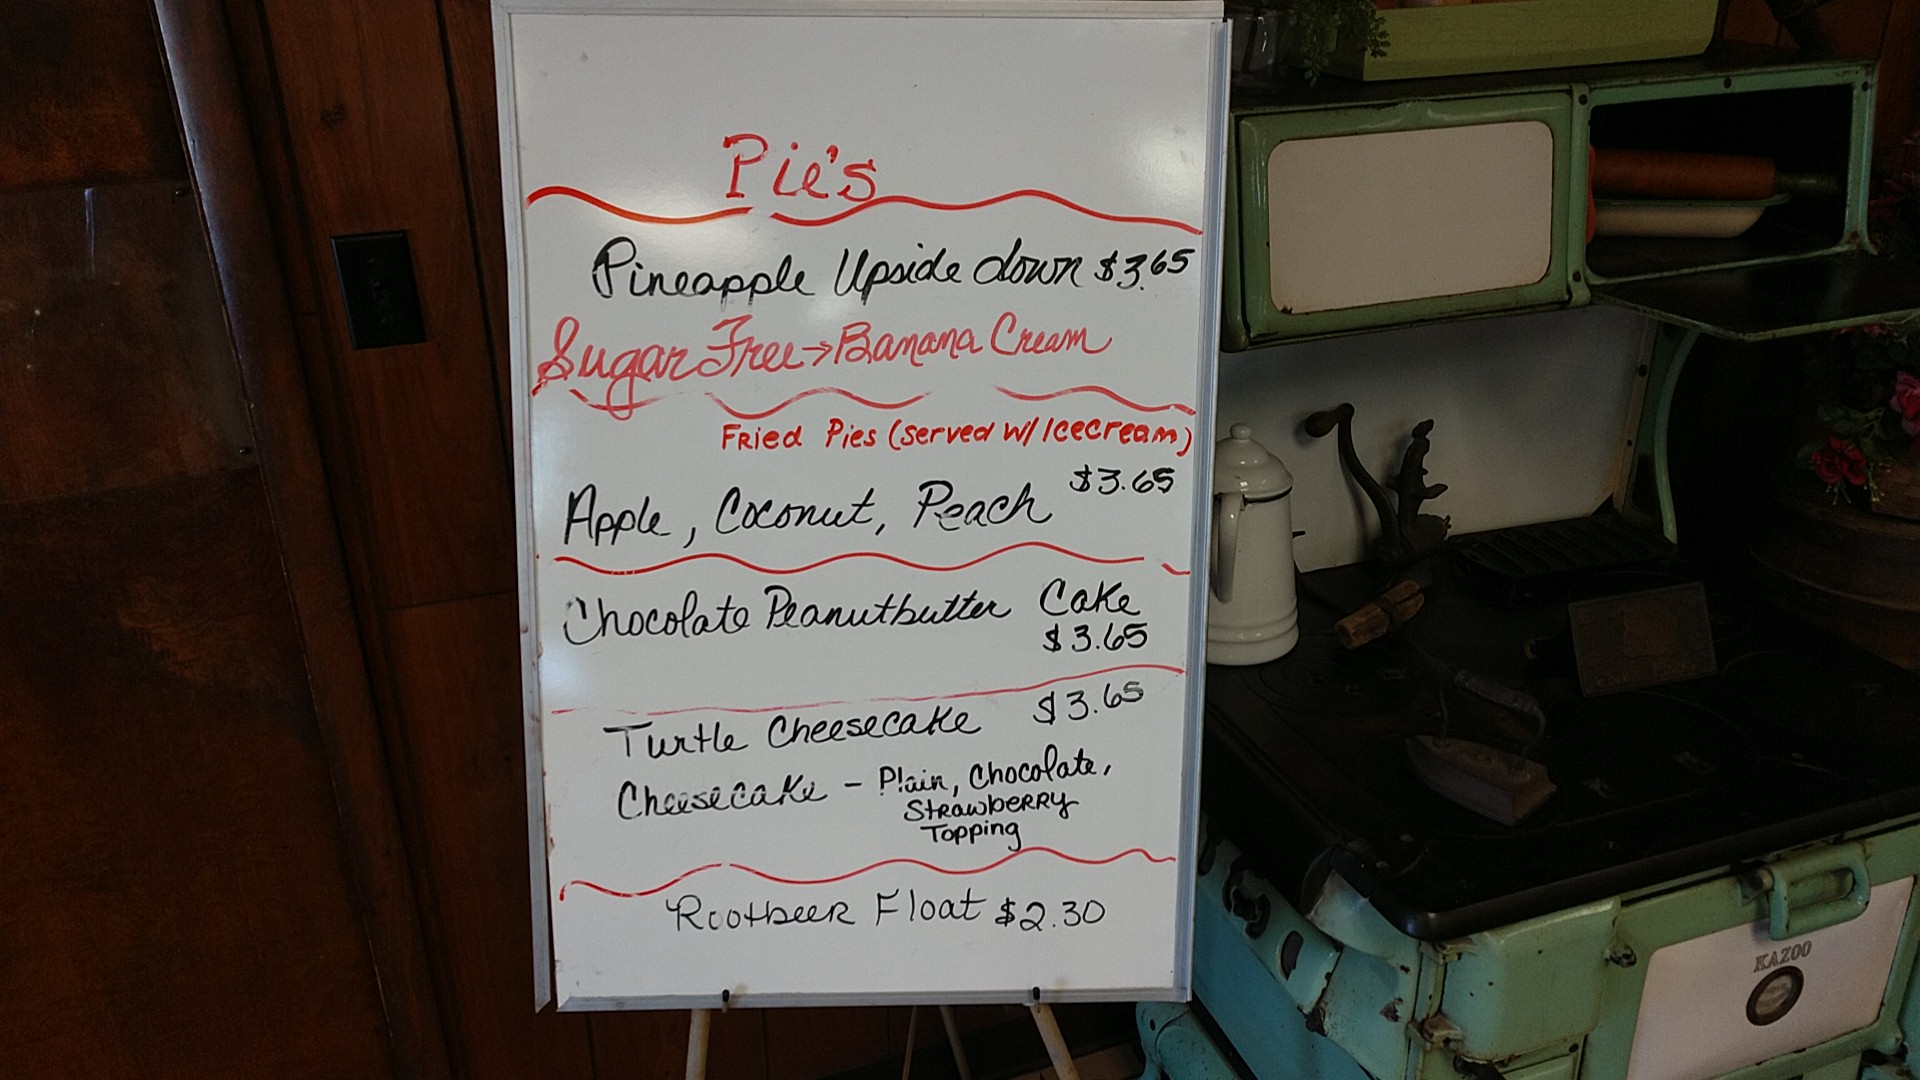 Pie's
Pineapple Upside down $3.65
Sugar Free→Banana Cream
Fried Pies (served w/ Icecream)
$3.65
Apple, Coconut, Peach
Chocolate Peanutbutter Cake
$3.65
Turtle Cheesecake $3.65
Cheesecake - Plain, Chocolate,
Strawberry
Topping
Rootbeer Float $2.30
KAZOO